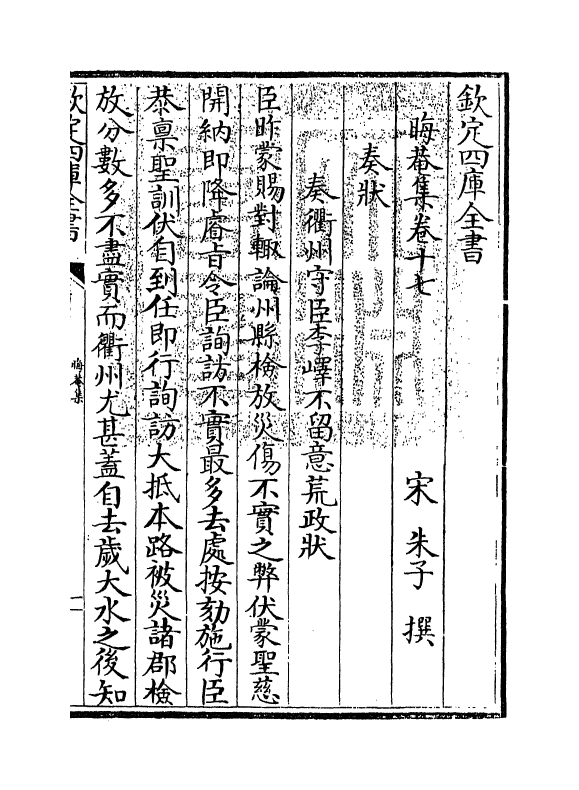 欽定四庫全書
晦菴集卷十七
宋 朱子 撰
奏狀
奏衢州守臣李嶧不留意荒政狀
臣昨蒙賜對輙論州縣檢放災傷不實之弊伏蒙聖慈
開納即降睿旨令臣詢訪不實最多去處按劾施行臣
恭禀聖訓伏自到任即行詢訪大抵本路被災諸郡檢
放分數多不盡實而衢州尤甚蓋自去歲大水之後知
欽定四庫全書
晦菴集